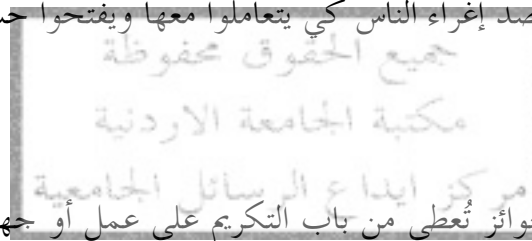 إغراء الناس كي يتعاملوا معها ويفتحوا
جميع الحقوق محفوظة
مكتبة الجامعة الاردنية
مركز ايداع الرسائل الجامعية
تُعطى من باب التكريم على عمل أو